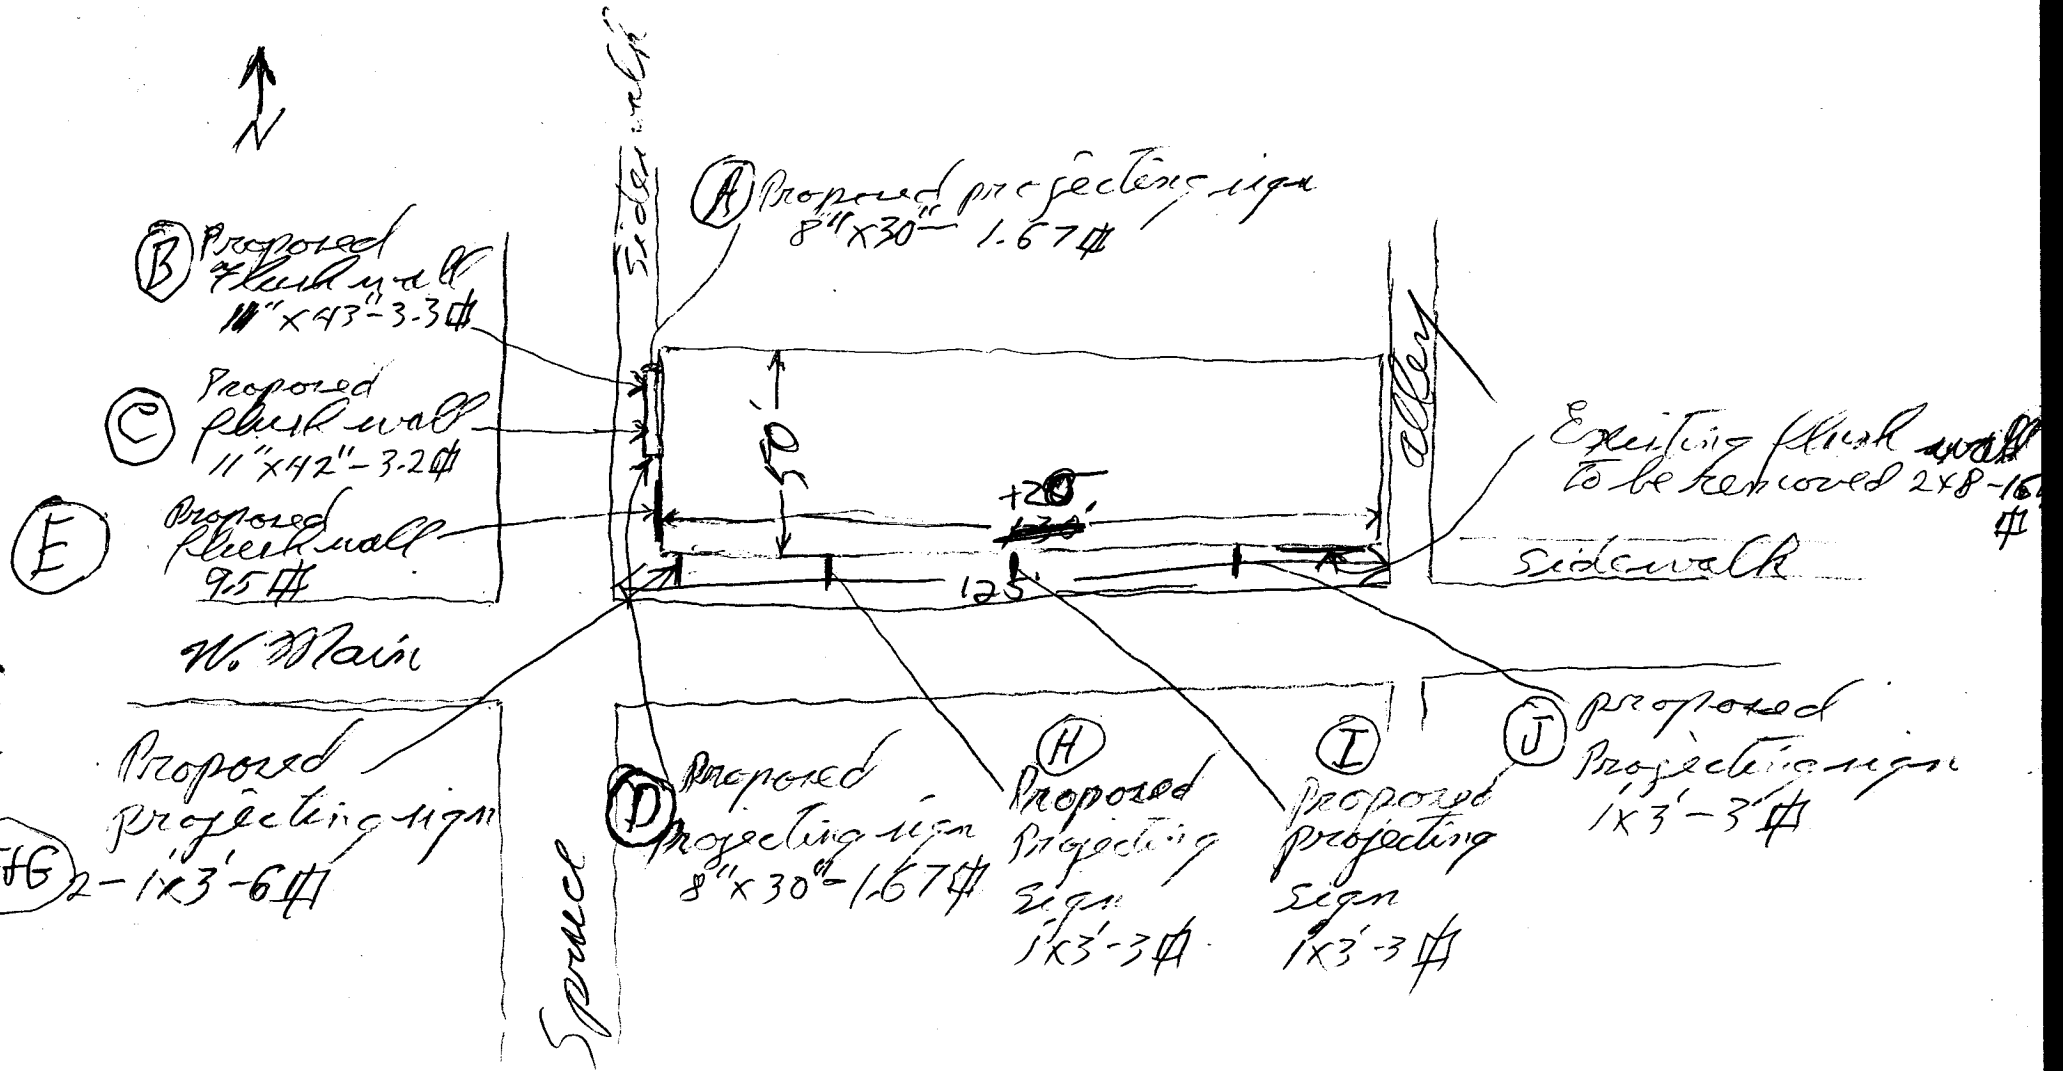 N
Sidewalk
A Proposed projecting sign
8"x30"- 1.67 ⌗
B Proposed
Flush wall
11"x43"-3.3 ⌗
C Proposed
flush wall
11"x42"-3.2 ⌗
E Proposed
flush wall
9.5 ⌗
50'
alley
Existing flush wall
to be removed 2x8-16
⌗
Sidewalk
125'
W. Main
Proposed
projecting sign
2-1'x3'-6 ⌗
G
Spruce
D Proposed
Projecting sign
8"x30"-1.67 ⌗
H
Proposed
Projecting
Sign
1'x3'-3 ⌗
I
Proposed
projecting
Sign
1'x3'-3 ⌗
J proposed
Projecting sign
1'x3'-3' ⌗